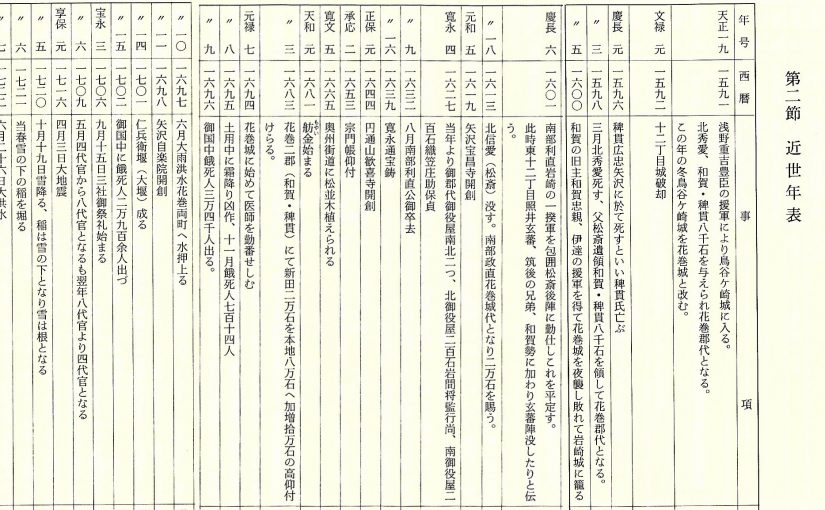 第二節　近世年表
年号　西暦　事項
天正一九　一五九一　浅野重吉豊臣の援軍により鳥谷ケ崎城に入る。
北秀愛、和賀・稗貫八千石を与えられ花巻郡代となる。
この年の冬鳥谷ケ崎城を花巻城と改む。
文禄　元　一五九二　十二丁目城破却
慶長　元　一五九六　稗貫広忠矢沢に於て死すといい稗貫氏亡ぶ
〃　三　一五九八　三月北秀愛死す、父松斎遺領和賀・稗貫八千石を領して花巻郡代となる。
〃　五　一六〇〇　和賀の旧主和賀忠親、伊達の援軍を得て花巻城を夜襲し敗れて岩崎城に籠る
慶長　六　一六〇一　南部利直岩崎の一揆軍を包囲松斎後陣に勤仕しこれを平定す。
此時東十二丁目照井玄蕃、筑後の兄弟、和賀勢に加わり玄蕃陣没したりと伝
う。
〃　一八　一六一三　北信愛（松斎）没す。南部政直花巻城代となり二万石を賜う。
元和　五　一六一九　矢沢宝昌寺開創
寛永　四　一六二七　当年より御郡代御役屋南北二つ、北御役屋二百石岩間将監行尚、南御役屋二
百石織笠庄助保貞
〃　九　一六三二　八月南部利直公御卒去
〃　一六　一六三九　寛永通宝鋳
正保　元　一六四四　円通山歓喜寺開創
承応　二　一六五三　宗門帳仰付
寛文　五　一六六五　奥州街道に松並木植えられる
天和　元　一六八一　舫金始まる
〃　三　一六八三　花巻二郡（和賀・稗貫）にて新田二万石を本地八万石へ加増拾万石の高仰付
けらる。
元禄　七　一六九四　花巻城に始めて医師を勤番せしむ
〃　八　一六九五　土用中に霜降り凶作、十一月餓死人七百十四人
〃　九　一六九六　御国中餓死人三万四千人出る。
〃　一〇　一六九七　六月大雨洪水花巻両町へ水押上る
〃　一一　一六九八　矢沢自楽院開創
〃　一四　一七〇一　仁兵衛堰（大堰）成る
〃　一五　一七〇二　御国中に餓死人二万九百余人出づ
宝永　三　一七〇六　九月十五日三社御祭礼始まる
〃　六　一七〇九　五月四代官から八代官となるも翌年八代官より四代官となる
享保　元　一七一六　四月三日大地震
〃　五　一七二〇　十月十九日雪降る、稲は雪の下となり雪は根となる
〃　六　一七二一　当春雪の下の稲を堀る
〃　七　一七二二　六月二十六日大洪水